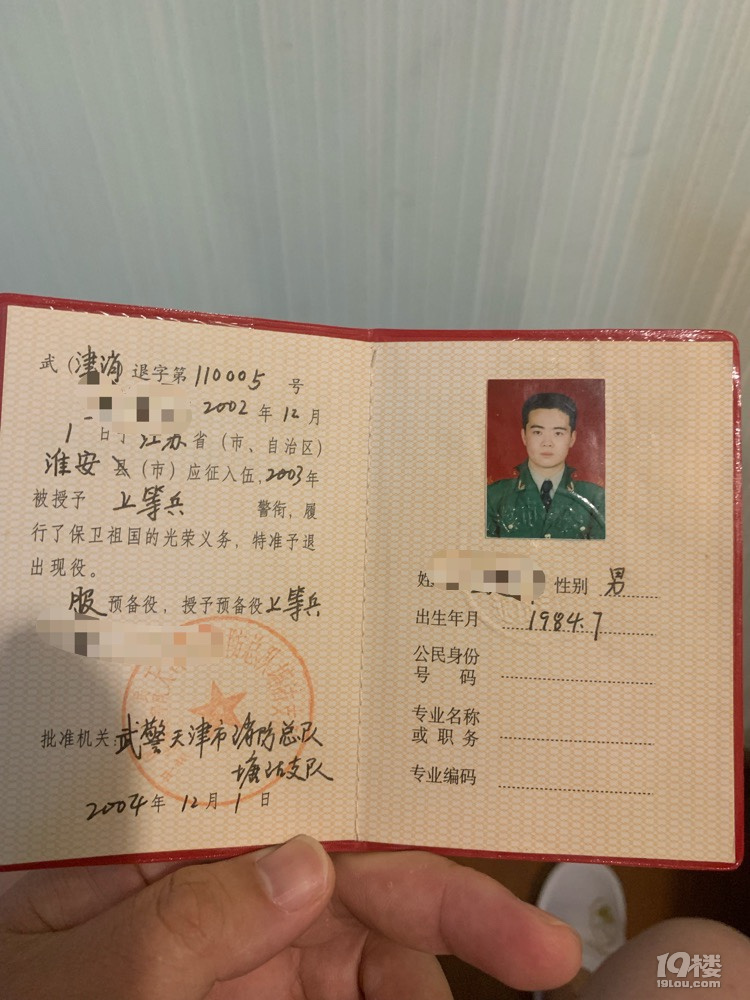 武（津消）退字第 110005 号
2002 年 12 月
1 日于 江苏 省（市、自治区）
淮安 县（市）应征入伍，2003 年
被授予 上等兵 警衔，履
行了保卫祖国的光荣义务，特准予退
出现役。
服 预备役，授予预备役 上等兵
批准机关：武警天津市消防总队
塘沽支队
2004 年 12 月 1 日
姓 性别 男
出生年月 1984.7
公民身份
号 码
专业名称
或 职 务
专业编码
19楼
19lou.com